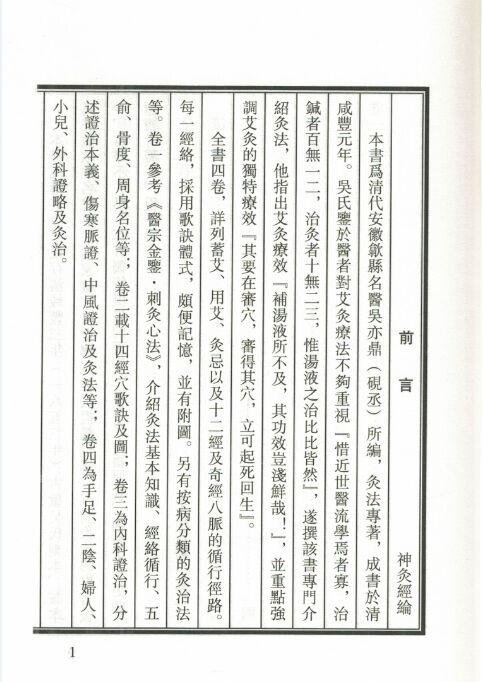 神灸經綸
前言
本書爲清代安徽歙縣名醫吳亦鼎（硯丞）所編，灸法專著，成書於清
咸豐元年。吳氏鑒於醫者對艾灸療法不夠重視『惜近世醫流學焉者寡，治
鍼者百無一二，治灸者十無二三，惟湯液之治比比皆然』，遂撰該書專門介
紹灸法，他指出艾灸療效『補湯液所不及，其功效豈淺鮮哉！』，並重點強
調艾灸的獨特療效『其要在審穴，審得其穴，立可起死回生』。
全書四卷，詳列蓄艾、用艾、灸忌以及十二經及奇經八脈的循行徑路。
每一經絡，採用歌訣體式，頗便記憶，並有附圖。另有按病分類的灸治法
等。卷一參考《醫宗金鑒·刺灸心法》，介紹灸法基本知識、經絡循行、五
俞、骨度、周身名位等；卷二載十四經穴歌訣及圖；卷三為內科證治，分
述證治本義、傷寒脈證、中風證治及灸法等；卷四為手足、二陰、婦人、
小兒、外科證略及灸治。
1